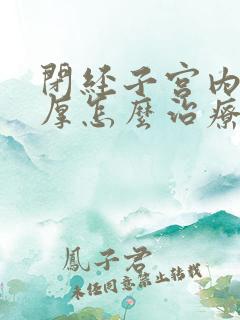 閉經子宮內
厚怎麼治療
鳳子君
未任同意禁止转载